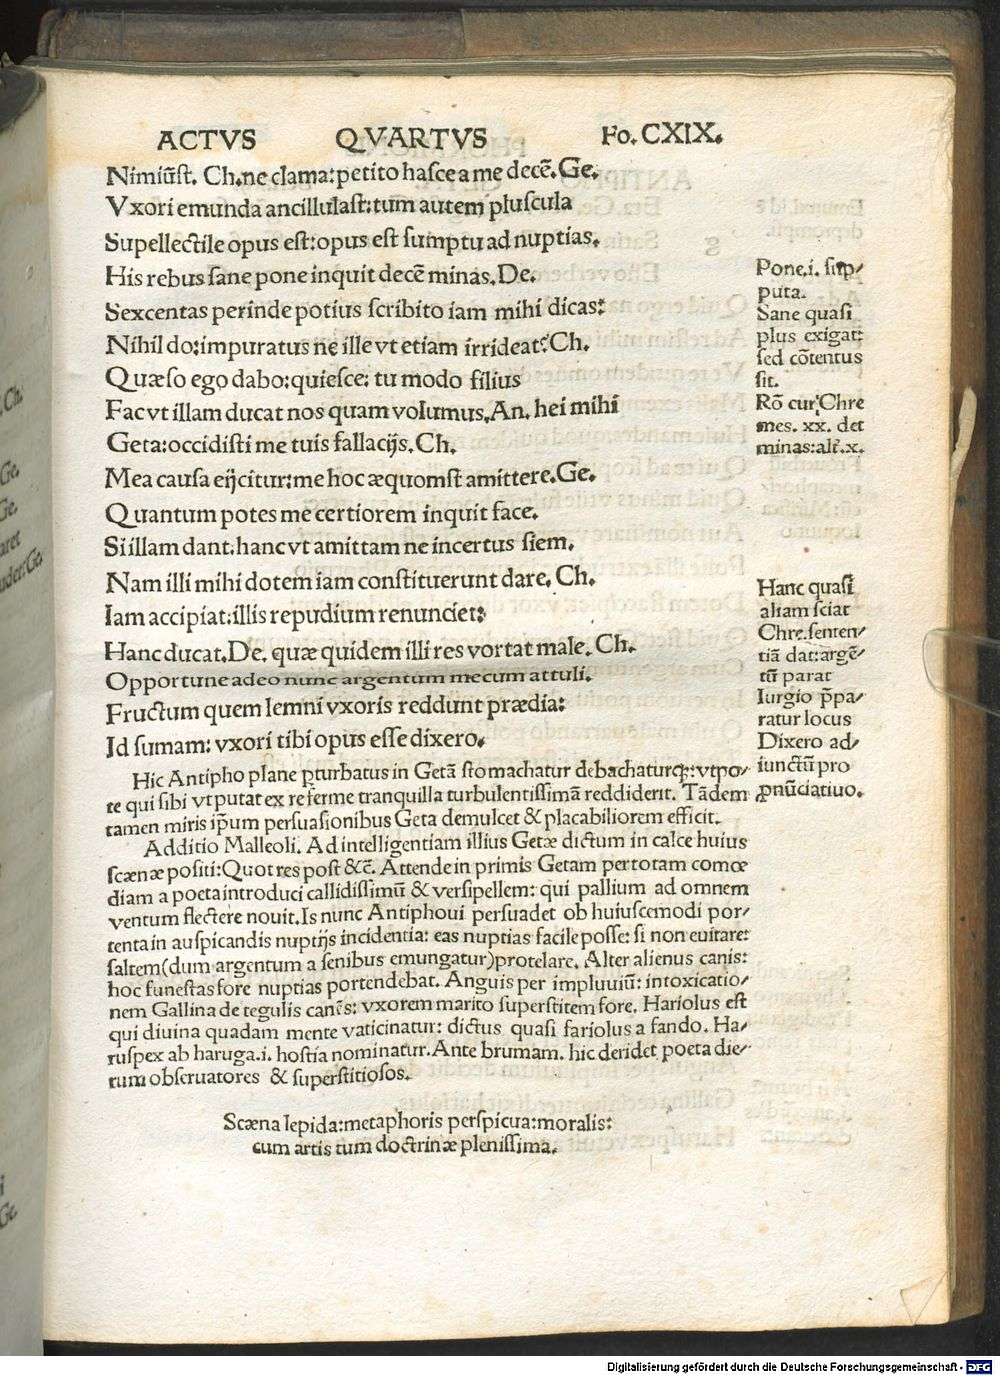 ACTVS QVARTVS Fo. CXIX.
Nimiũst. Ch. ne clama: petito hasce a me decẽ. Ge.
Vxori emunda ancillulast: tum autem pluscula
Supellectile opus est: opus est sumptu ad nuptias.
His rebus sane pone inquit decẽ minas. De.
Sexcentas perinde potius scribito iam mihi dicas:
Nihil do: impuratus ne ille vt etiam irrideat? Ch.
Quæso ego dabo: quiesce: tu modo filius
Fac vt illam ducat nos quam volumus. An. hei mihi
Geta: occidisti me tuis fallacijs. Ch.
Mea causa eijcitur: me hoc æquomst amittere. Ge.
Quantum potes me certiorem inquit face.
Si illam dant: hanc vt amittam ne incertus siem.
Nam illi mihi dotem iam constituerunt dare. Ch.
Iam accipiat: illis repudium renunciet:
Hanc ducat. De. quæ quidem illi res vortat male. Ch.
Opportune adeo nunc argentum mecum attuli.
Fructum quem lemni vxoris reddunt prædia:
Id sumam: vxori tibi opus esse dixero.
Hic Antipho plane ꝑturbatus in Getã stomachatur debachaturꝗ: vtpo-
te qui sibi vt putat ex referme tranquilla turbulentissimã reddiderit. Tãdem
tamen miris ip̃um persuasionibus Geta demulcet & placabiliorem efficit.
Additio Malleoli. Ad intelligentiam illius Getæ dictum in calce huius
scænæ positi: Quot res post &c̃. Attende in primis Getam per totam comœ
diam a poeta introduci callidissimũ & versipellem: qui pallium ad omnem
ventum flectere nouit. Is nunc Antiphoui persuadet ob huiuscemodi por-
tenta in auspicandis nuptijs incidentia: eas nuptias facile posse: si non euitare:
saltem (dum argentum a senibus emungatur) protelare. Alter alienus canis:
hoc funestas fore nuptias portendebat. Anguis per impluuiũ: intoxicatio-
nem Gallina de tegulis canẽs: vxorem marito superstitem fore. Hariolus est
qui diuina quadam mente vaticinatur: dictus quasi fariolus a fando. Ha-
ruspex ab haruga .i. hostia nominatur. Ante brumam. hic deridet poeta die-
rum obseruatores & superstitiosos.
Scæna lepida: metaphoris perspicua: moralis:
cum artis tum doctrinæ plenissima.
Pone .i. sup-
puta.
Sane quasi
plus exigat:
sed cõtentus
sit.
Rõ cur Chre
mes. xx. det
minas: alr̃. x.
Hanc quasi
aliam sciat
Chre. senten-
tiã dat: argẽ-
tũ parat
Iurgio p̃pa-
ratur locus
Dixero ad-
iunctũ pro
ꝓnũciatiuo.
Digitalisierung gefördert durch die Deutsche Forschungsgemeinschaft - DFG